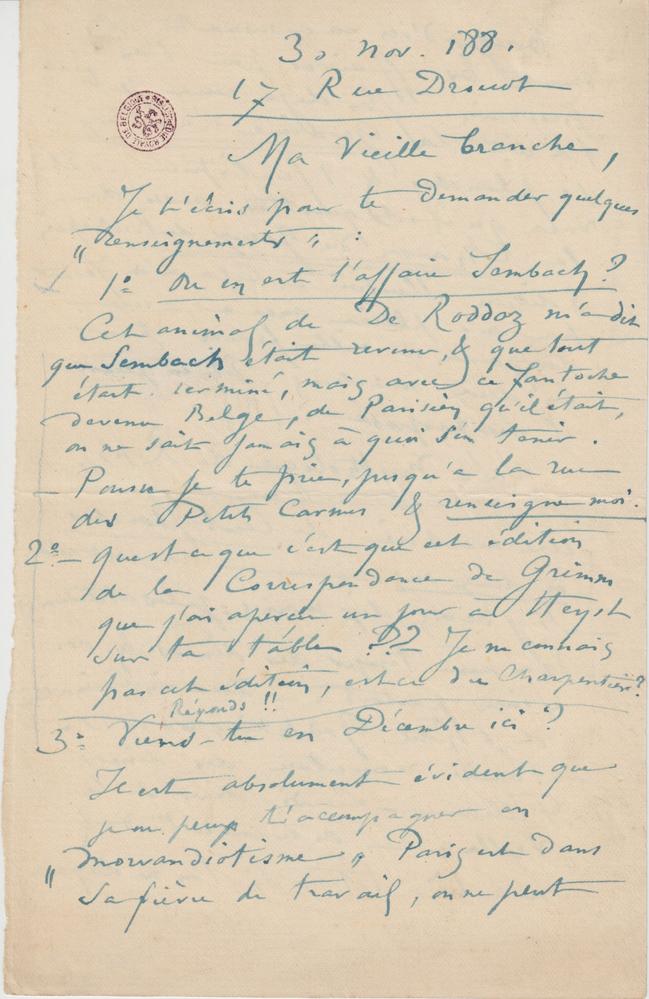 30 Nov. 188.
17 Rue Drouot
BIBLIOTHÈQUE ROYALE DE BELGIQUE
Ma Vieille branche,
Je t'écris pour te demander quelques
"renseignements" :
1º Ou en est l'affaire Sembach ?
Cet animal de De Roddaz m'a dit
que Sembach était revenu, & que tout
était terminé, mais avec ce fantoche
devenu Belge, de Parisien qu'il était,
on ne sait jamais à quoi s'en tenir.
Pousse je te prie, jusqu'à la rue
des Petits Carmes & renseigne moi.
2º – qu'est ce que c'est que cet édition
de la Correspondance de Grimm
que j'ai aperçu un jour à Heyst
sur ta table ?? – Je ne connais
pas cet édition, est ce du Charpentier ?
Réponds !!
3º Viens-tu en Décembre ici ?
Il est absolument évident que
je ne peux t'accompagner en
"morvandiotisme", Paris est dans
sa fièvre de travail, on ne peut